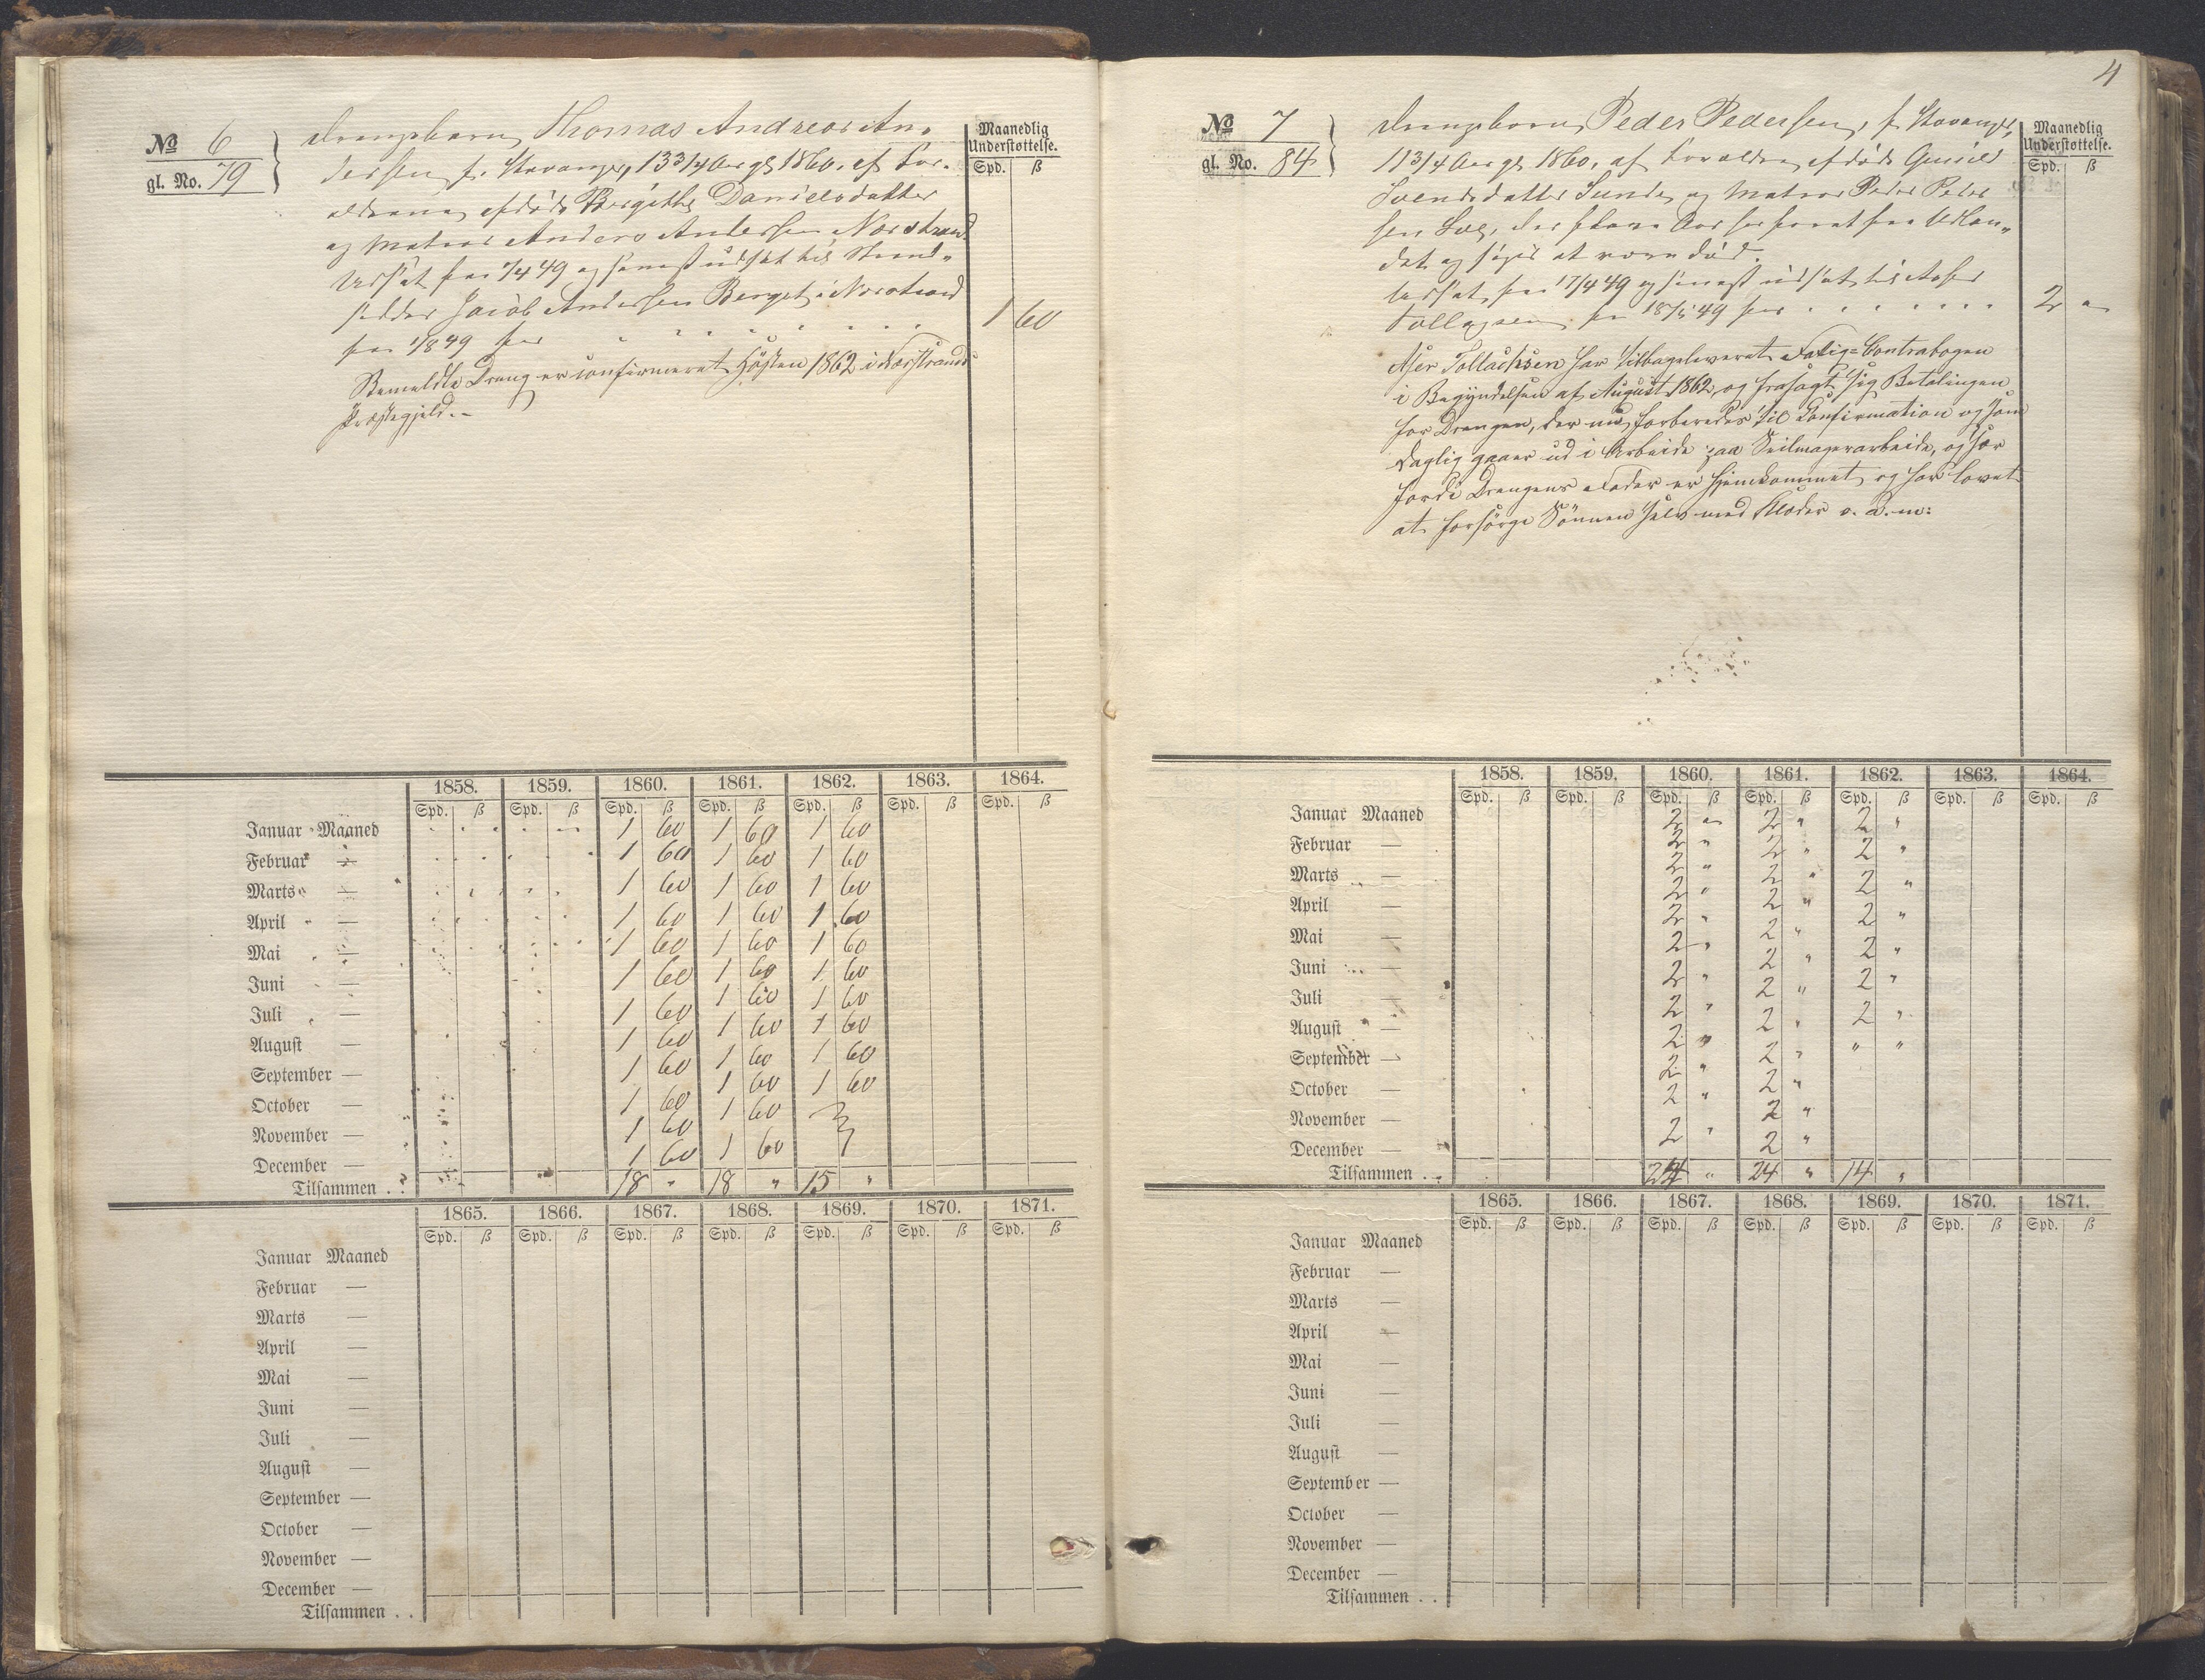 No 6
gl. No. 79
Drengebarn Thomas Andreas An-
dersen f. Stavanger, 13 3/4 Aar gl 1860, af For-
ældrene afdøde Birgitthe Danielsdatter
og Matros Anders Andersen Nærstrand.
Udsat fra 1/4 49 og senest udsat til Strand-
sidder Jacob Andersen Berget i Nærstrand
fra 1/8 49 for
Bemeldte Dreng er confirmeret Høsten 1862 i Nærstrands
Præstegjeld.-
Maanedlig
Understøttelse.
Spd. ß
1 60
1858. 1859. 1860. 1861. 1862. 1863. 1864.
Spd. ß Spd. ß Spd. ß Spd. ß Spd. ß Spd. ß Spd. ß
Januar Maaned 1 60 1 60 1 60
Februar — 1 60 1 60 1 60
Marts — 1 60 1 60 1 60
April — 1 60 1 60 1 60
Mai — 1 60 1 60 1 60
Juni — 1 60 1 60 1 60
Juli — 1 60 1 60 1 60
August — 1 60 1 60 1 60
September — 1 60 1 60 1 60
October — 1 60 1 60 1 60
November — 1 60 1 60
December — 1 60 1 60
Tilsammen . . 18 " 18 " 15 "
1865. 1866. 1867. 1868. 1869. 1870. 1871.
Spd. ß Spd. ß Spd. ß Spd. ß Spd. ß Spd. ß Spd. ß
Januar Maaned
Februar —
Marts —
April —
Mai —
Juni —
Juli —
August —
September —
October —
November —
December —
Tilsammen . .
4
No 7
gl. No. 84
Drengebarn Peder Pedersen, f. Stavanger,
11 3/4 Aar gl 1860, af Forældre afdøde Gunild
Svendsdatter Sunde og Matros Peder Peder
sen, der flere Aar har faret fra Udlan-
det og siges at være død.
Udsat fra 17/4 49 og senest udsat til Aser
Tollagsen fra 18/5 49 for
Aser Tollachsen har tilbageleveret Fattig-Contrabogen
i Begyndelsen af August 1862, og frasagt sig Betalingen
for Drengen, der nu forberedes til Confirmation og som
daglig gaaer ud i Arbeide paa Seilmagerarbeide, og har
fordi Drengens Fader er hjemkommet og har lovet
at forsørge Sønnen selv med Klæder o. a. m:
Maanedlig
Understøttelse.
Spd. ß
2 "
1858. 1859. 1860. 1861. 1862. 1863. 1864.
Spd. ß Spd. ß Spd. ß Spd. ß Spd. ß Spd. ß Spd. ß
Januar Maaned 2 " 2 " 2 "
Februar — 2 " 2 " 2 "
Marts — 2 " 2 " 2 "
April — 2 " 2 " 2 "
Mai — 2 " 2 " 2 "
Juni — 2 " 2 " 2 "
Juli — 2 " 2 " 2 "
August — 2 " 2 " " "
September — 2 " 2 "
October — 2 " 2 "
November — 2 " 2 "
December — 2 " 2 "
Tilsammen . . 24 " 24 " 14 "
1865. 1866. 1867. 1868. 1869. 1870. 1871.
Spd. ß Spd. ß Spd. ß Spd. ß Spd. ß Spd. ß Spd. ß
Januar Maaned
Februar —
Marts —
April —
Mai —
Juni —
Juli —
August —
September —
October —
November —
December —
Tilsammen . .